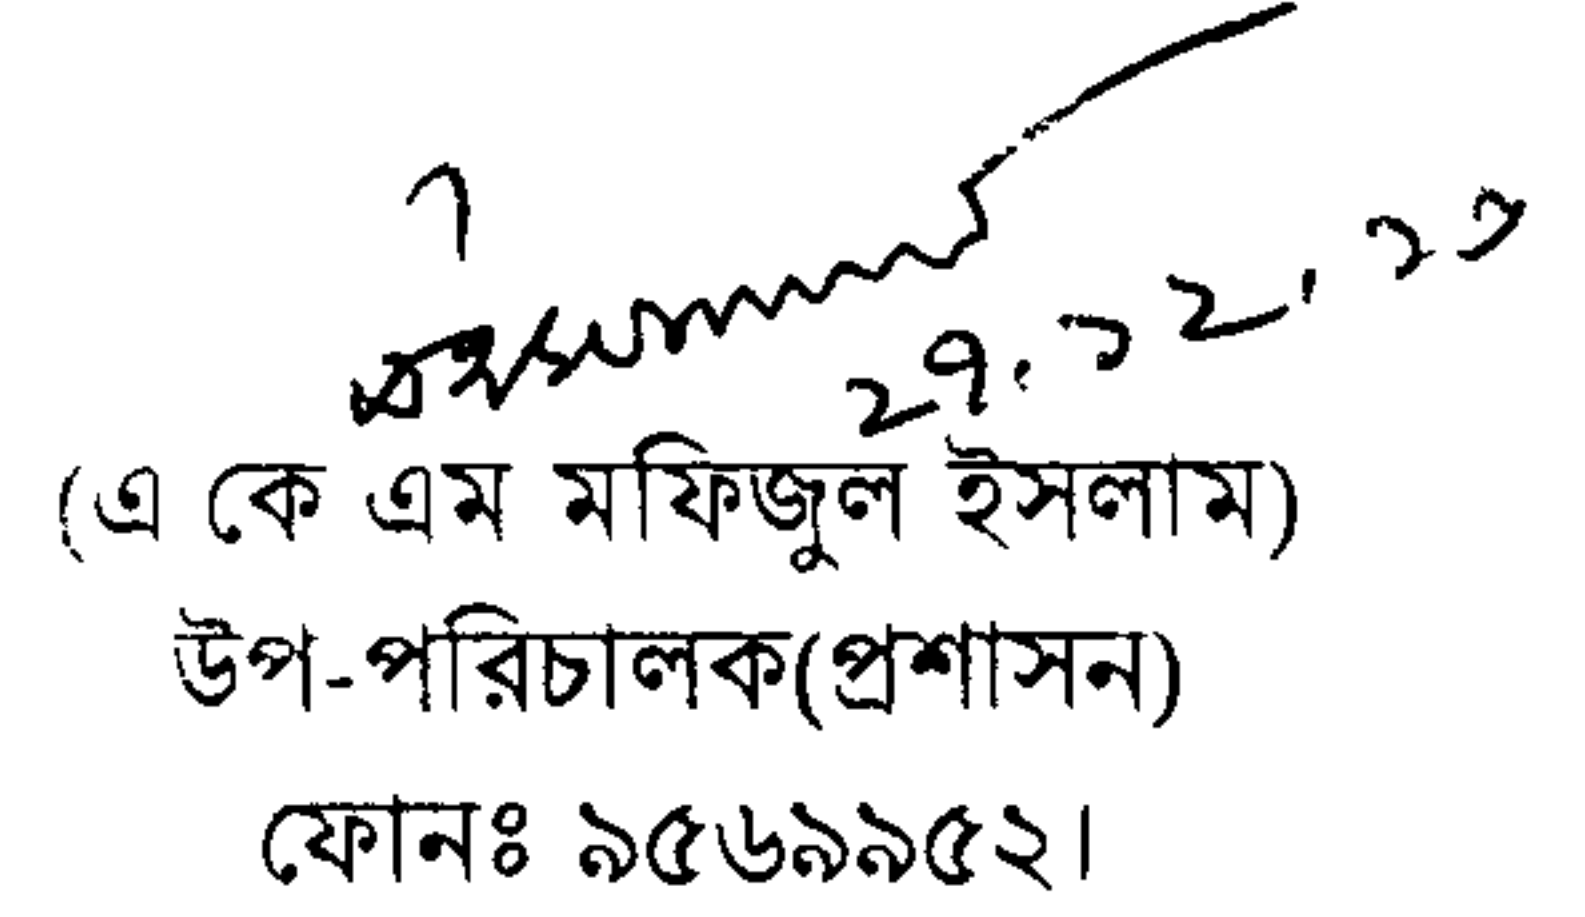 ২৭.১২.১১
(এ কে এম মফিজুল ইসলাম)
উপ-পরিচালক(প্রশাসন)
ফোনঃ ৯৫৬৯৯৫২।